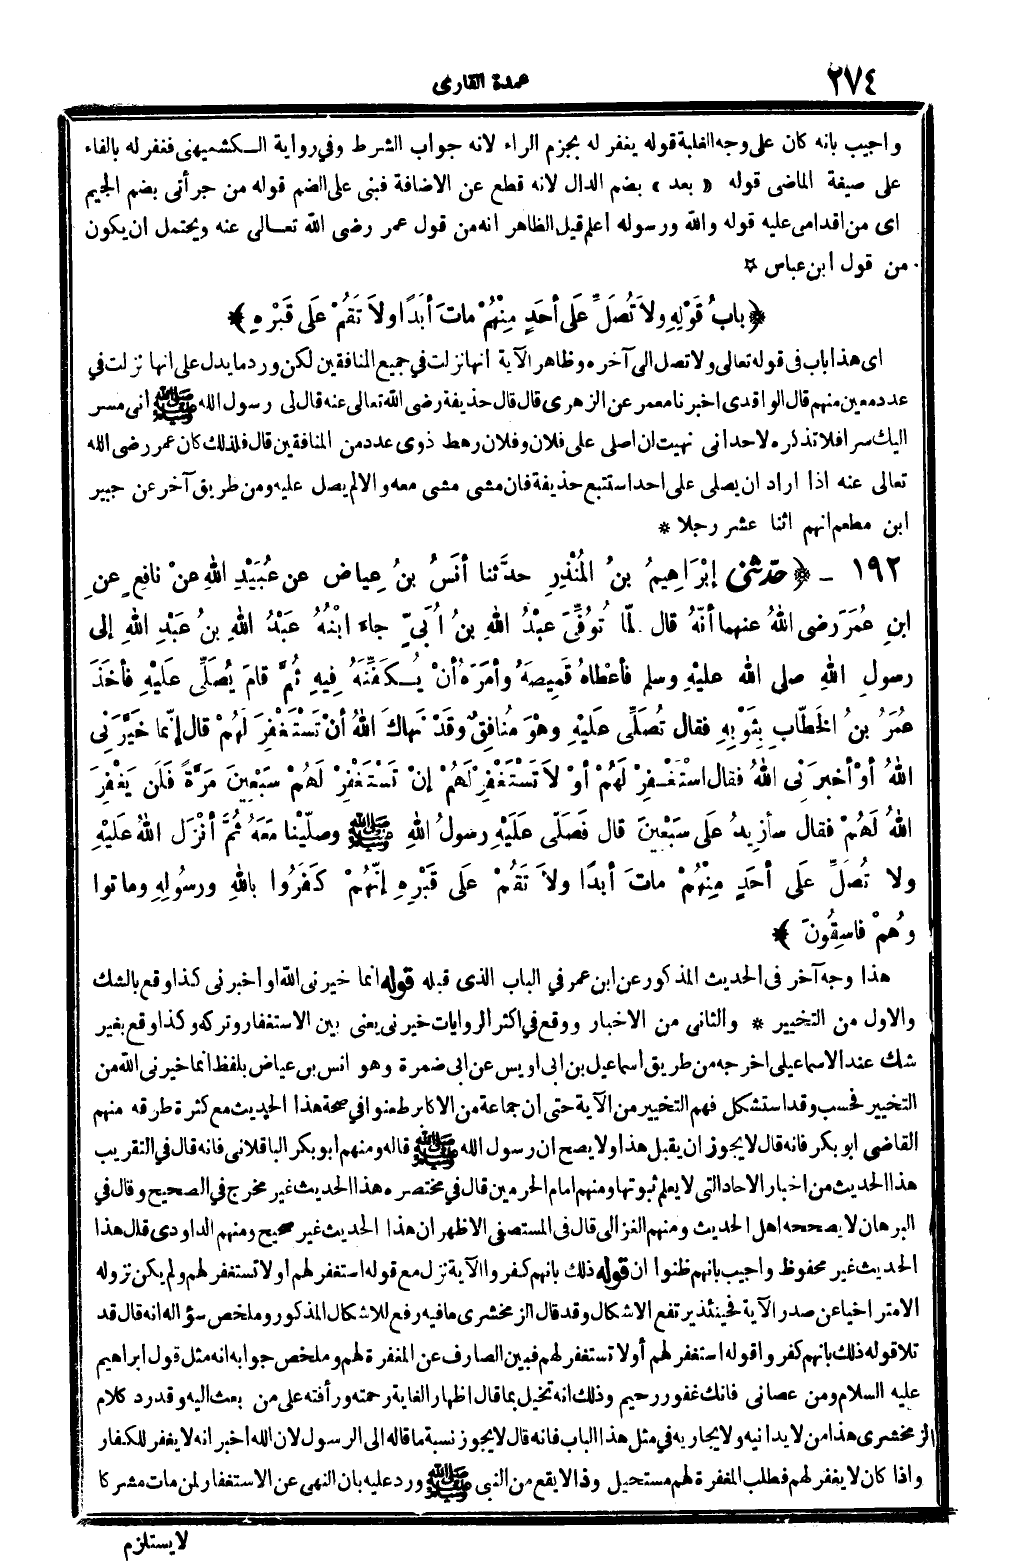 ٢٧٤
عمدة القارى
واجيب بانه كان على وجه الغلبة قوله يغفر له بجزم الراء لانه جواب الشرط وفي رواية الـكشميهنى فغفر له بالفاء
على صيغة الماضى قوله « بعد » بضم الدال لانه قطع عن الاضافة فبنى على الضم قوله من جرأتى بضم الجيم
اى من اقدامى عليه قوله والله ورسوله اعلم قيل الظاهر انه من قول عمر رضى الله تعـالى عنه ويحتمل ان يكون
من قول ابن عباس ٭
﴿ بابُ قَوْلِهِ ولاَ تُصَلِّ عَلى أحَدٍ مِنْهُمْ ماتَ أبَدًا ولاَ تَقُمْ عَلى قَبْرِهِ ﴾
اى هذا باب فى قوله تعالى ولا تصل الى آخره وظاهر الآية انها نزلت في جميع المنافقين لكن ورد ما يدل على انها نزلت في
عدد معين منهم قال الواقدى اخبرنا معمر عن الزهرى قال قال حذيفة رضى الله تعالى عنه قال لى رسول الله ﷺ انى مسر
اليك سرا فلا تذكره لاحد انى نهيت ان اصلى على فلان وفلان رهط ذوى عدد من المنافقين قال فلذلك كان عمر رضى الله
تعالى عنه اذا اراد ان يصلى على احد استتبع حذيفة فان مشى مشى معه والا لم يصل عليه ومن طريق آخر عن جبير
ابن مطعم انهم اثنا عشر رجلا ٭
١٩٢ ـ ﴿ حدّثنى إبْرَاهِيمُ بنُ المُنْذِرِ حدَّثنا أنَسُ بنُ عِياض عن عُبَيْدِ اللهِ عنْ نافِعٍ عنِ
ابنِ عُمَرَ رضى اللهُ عنهما أنَّهُ قال لمّا تُوُفِّىَ عبْدُ اللهِ بنُ أُبَىٍّ جاءَ ابْنُهُ عَبْدُ اللهِ بنُ عَبْدِ اللهِ إلى
رسولِ اللهِ صلى الله عليْهِ وسلم فأعْطاهُ قَمِيصَهُ وأمَرَهُ أنْ يُـكَفِّنَهُ فِيهِ ثُمَّ قامَ يُصَلِّى عليْهِ فأخَذَ
عُمَرُ بنُ الخَطّابِ بِثَوْبِهِ فقال تُصَلِّى عَلَيْهِ وهْوَ مُنافِقٌ وقَدْ نَهاكَ اللهُ أنْ تَسْتَغْفِرَ لَهُمْ قال إنّما خَيَّرَنِى
اللهُ أوْ أخْبرَنِى اللهُ فقال اسْتَغْـفِرْ لَهُمْ أوْ لاَ تَسْتَغْفِرْ لَهُمْ إنْ تَسْتَغْفِرْ لَهُمْ سَبْعِينَ مَرَّةً فَلَن يَغْفِرَ
اللهُ لَهُمْ فقال سأزِيدُ عَلى سَبْعِينَ قال فَصَلّى عَلَيْهِ رسولُ اللهِ ﷺ وصلّيْنا مَعَهُ ثُمَّ أنْزَل اللهُ عَليْهِ
ولا تُصَلِّ عَلَى أحَدٍ مِنْهُمْ ماتَ أبدًا ولاَ تَقُمْ عَلى قَبْرِهِ إنّهُمْ كَفَرُوا باللهِ ورسُولِهِ وماتوا
وهُمْ فاسِقُونَ ﴾
هذا وجه آخر فى الحديث المذكور عن ابن عمر في الباب الذى قبله قوله انما خيرنى الله او اخبرنى كذا وقع بالشك
والاول من التخيير ٭ والثانى من الاخبار ووقع في اكثر الروايات خيرنى يعنى بين الاستغفار وتركه وكذا وقع بغير
شك عند الاسماعيلى اخرجه من طريق اسماعيل بن ابى اويس عن ابى ضمرة وهو انس بن عياض بلفظ انما خيرنى الله من
التخيير فحسب وقد استشكل فهم التخيير من الآية حتى ان جماعة من الاكابر طعنوا في صحة هذا الحديث مع كثرة طرقه منهم
القاضى ابو بكر فانه قال لا يجوز ان يقبل هذا ولا يصح ان رسول الله ﷺ قاله ومنهم أبو بكر الباقلانى فانه قال في التقريب
هذا الحديث من اخبار الآحاد التى لا يعلم ثبوتها ومنهم امام الحرمين قال في مختصره هذا الحديث غير مخرج في الصحيح وقال في
البرهان لا يصححه اهل الحديث ومنهم الغزالى قال فى المستصفى الاظهر ان هذا الحديث غير صحيح ومنهم الداودى قال هذا
الحديث غير محفوظ واجيب بانهم ظنوا ان قوله ذلك بانهم كفروا الآية نزل مع قوله استغفر لهم أو لا تستغفر لهم ولم يكن نزوله
الا متراخيا عن صدر الآية فحينئذ يرتفع الاشكال وقد قال الزمخشرى ما فيه رفع للاشكال المذكور وملخص سؤاله انه قال قد
تلا قوله ذلك بانهم كفروا قوله استغفر لهم أو لا تستغفر لهم فبين الصارف عن المغفرة لهم وملخص جوابه انه مثل قول ابراهيم
عليه السلام ومن عصانى فانك غفور رحيم وذلك انه تخيل بما قال اظهار الغاية رحمته ورأفته على من بعث اليه وقد رد كلام
الزمخشرى هذا من لا يدانيه ولا يجاريه في مثل هذا الباب فانه قال لا يجوز نسبة ما قاله الى الرسول لان الله اخبر انه لا يغفر للكفار
واذا كان لا يغفر لهم فطلب المغفرة لهم مستحيل وذا لا يقع من النبى ﷺ ورد عليه بان النهى عن الاستغفار لمن مات مشركا
لا يستلزم